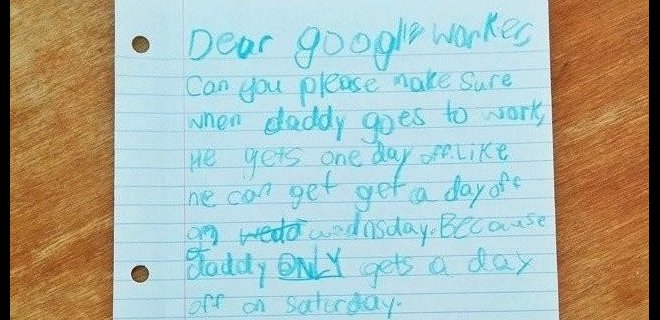 Dear google worker
Can you please make sure
when daddy goes to work,
He gets one day off. Like
he can get get a day off
on wedo wednsday. Because
daddy ONLY gets a day
off on saturday.